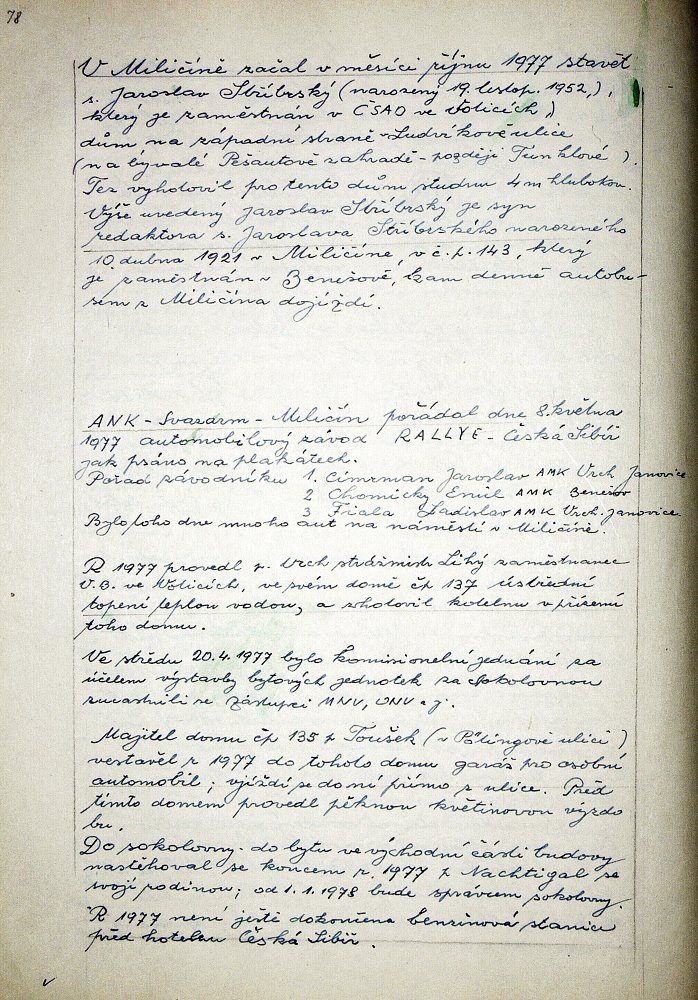 78
V Miličíně začal v měsíci říjnu 1977 stavět
s. Jaroslav Stříbrský (narozený 19. listop. 1952,),
který je zaměstnán v ČSAO ve Volicích,
dům na západní straně Ludvíkově ulice
(na bývalé Pešautově zahradě - později Tunklové).
Též vyhotovil pro tento dům studnu 4 m hlubokou.
Výše uvedený Jaroslav Stříbrský je syn
redaktora s. Jaroslava Stříbrského narozeného
10. dubna 1921 v Miličíně, v č. p. 143, který
je zaměstnán v Benešově, kam denně autobu-
sem z Miličína dojíždí.
ANK - Svazarm - Miličín pořádal dne 8. května
1977 automobilový závod RALLYE - Česká Sibiř
jak psáno na plakátech.
Pořad závodníku 1. Cimrman Jaroslav AMK Vrch. Janovice
2 Chomický Emil AMK Benešov
3 Fiala Ladislav AMK Vrch. Janovice
Bylo toho dne mnoho aut na náměstí v Miličíně.
R 1977 provedl p. Vrch strážmistr Lihý zaměstnanec
V. B. ve Volicích, ve svém domě čp 137 ústřední
topení teplou vodou, a zhotovil kotelnu v přízemí
toho domu.
Ve středu 20.4.1977 bylo komisionelní jednání za
účelem výstavby bytových jednotek za sokolovnou
zúčastnili se zástupci MNV, ONV a j.
Majitel domu čp 135 p Toušek (v Pölingově ulici)
vestavěl r 1977 do tohoto domu garáž pro osobní
automobil; vjíždí se do ní přímo z ulice. Před
tímto domem provedl pěknou květinovou výzdo
bu.
Do sokolovny - do bytu ve východní části budovy
nastěhoval se koncem r. 1977 p Nachtigal se
svojí rodinou; od 1.1.1978 bude správcem sokolovny.
R 1977 není ještě dokončena benzinová stanice
před hotelem Česká Sibiř.